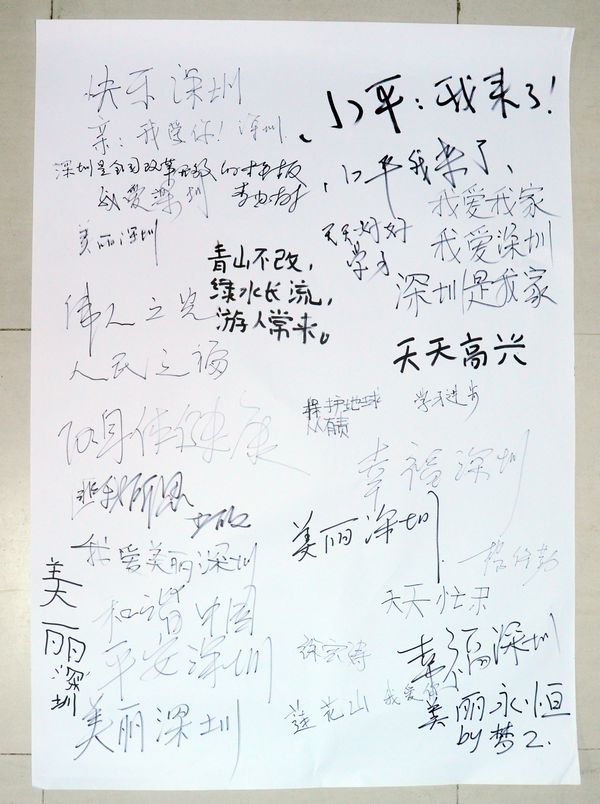 快乐深圳
亲：我爱你！深圳.
深圳是全国改革开放的样板
我爱深圳
美丽深圳
小平：我来了！
小平我来了、
天天好好
学习
我爱我家
我爱深圳
深圳是我家
青山不改，
绿水长流，
游人常来。
伟人之光
人民之福
天天高兴
保护地球
人人有责
学习进步
身体健康
幸福深圳
美丽深圳
我爱美丽深圳
美丽深圳
和谐中国
平安深圳
美丽深圳
天天忙
徐宏涛
莲花山我爱你
幸福深圳
美丽永恒
by 梦乙.